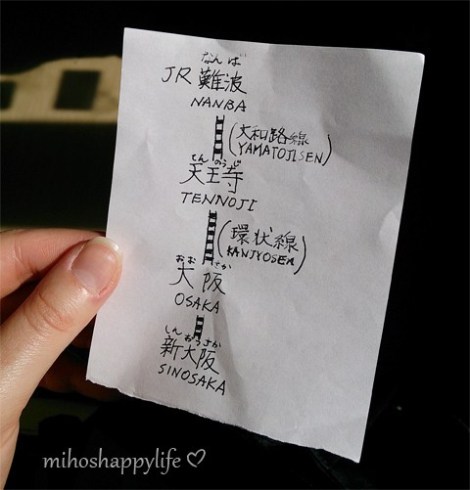 なんば
JR難波
NANBA
(大和路線
YAMATOJISEN)
てんのうじ
天王寺
TENNOJI
(環状線
KANJYOSEN)
おおさか
大阪
OSAKA
しんおおさか
新大阪
SINOSAKA
mihoshappylife ♡